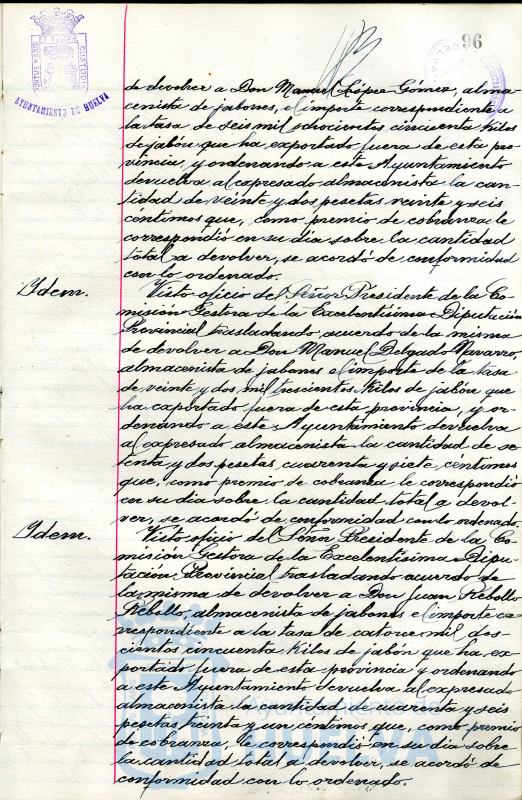 96
PORTUS MARIS ET TERRÆ CUSTODIA
AYUNTAMIENTO DE HUELVA
de devolver a Don Manuel López Gómez, alma-
cenista de jabones, el importe correspondiente a
la tasa de seis mil ochocientos cincuenta kilos
de jabón que ha exportado fuera de esta pro-
vincia, y ordenando a este Ayuntamiento
devuelva al expresado almacenista la can-
tidad de veinte y dos pesetas veinte y seis
céntimos que, como premio de cobranza le
correspondió en su día sobre la cantidad
total a devolver, se acordó de conformidad
con lo ordenado.
Ydem. Visto oficio del Señor Presidente de la Co-
misión Gestora de la Excelentísima Diputación
Provincial trasladando acuerdo de la misma
de devolver a Don Manuel Delgado Navarro,
almacenista de jabones el importe de la tasa
de veinte y dos mil trescientos kilos de jabón que
ha exportado fuera de esta provincia, y or-
denando a este Ayuntamiento devuelva
al expresado almacenista la cantidad de se-
tenta y dos pesetas, cuarenta y siete céntimos
que, como premio de cobranza le correspondió
en su día sobre la cantidad total a devol-
ver, se acordó de conformidad con lo ordenado.
Ydem. Visto oficio del Señor Presidente de la Co-
misión Gestora de la Excelentísima Dipu-
tación Provincial trasladando acuerdo de
la misma de devolver a Don Juan Rebollo
Rebollo, almacenista de jabones el importe co-
rrespondiente a la tasa de catorce mil dos-
cientos cincuenta kilos de jabón que ha ex-
portado fuera de esta provincia y ordenando
a este Ayuntamiento devuelva al expresado
almacenista la cantidad de cuarenta y seis
pesetas treinta y un céntimos que, como premio
de cobranza, le correspondió en su día sobre
la cantidad total a devolver, se acordó de
conformidad con lo ordenado.
HUELVA